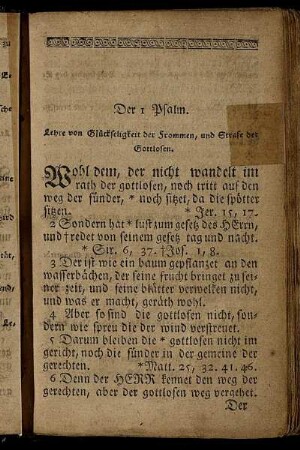 Der 1 Psalm.
Lehre von Glückseligkeit der Frommen, und Strafe der
Gottlosen.
Wohl dem, der nicht wandelt im
rath der gottlosen, noch tritt auf den
weg der sünder, * noch sitzet, da die spötter
sitzen. * Jer. 15, 17.
2 Sondern hat * lust zum gesetz des HErrn,
und † redet von seinem gesetz tag und nacht.
* Sir. 6, 37. † Jos. 1, 8.
3 Der ist wie ein baum gepflanzet an den
wasserbächen, der seine frucht bringet zu sei-
ner zeit, und seine blätter verwelken nicht,
und was er macht, geräth wohl.
4 Aber so sind die gottlosen nicht, son-
dern wie spreu die der wind verstreuet.
5 Darum bleiben die * gottlosen nicht im
gericht, noch die sünder in der gemeine der
gerechten. * Matt. 25, 32. 41. 46.
6 Denn der HERR kennet den weg der
gerechten, aber der gottlosen weg vergehet.
Der